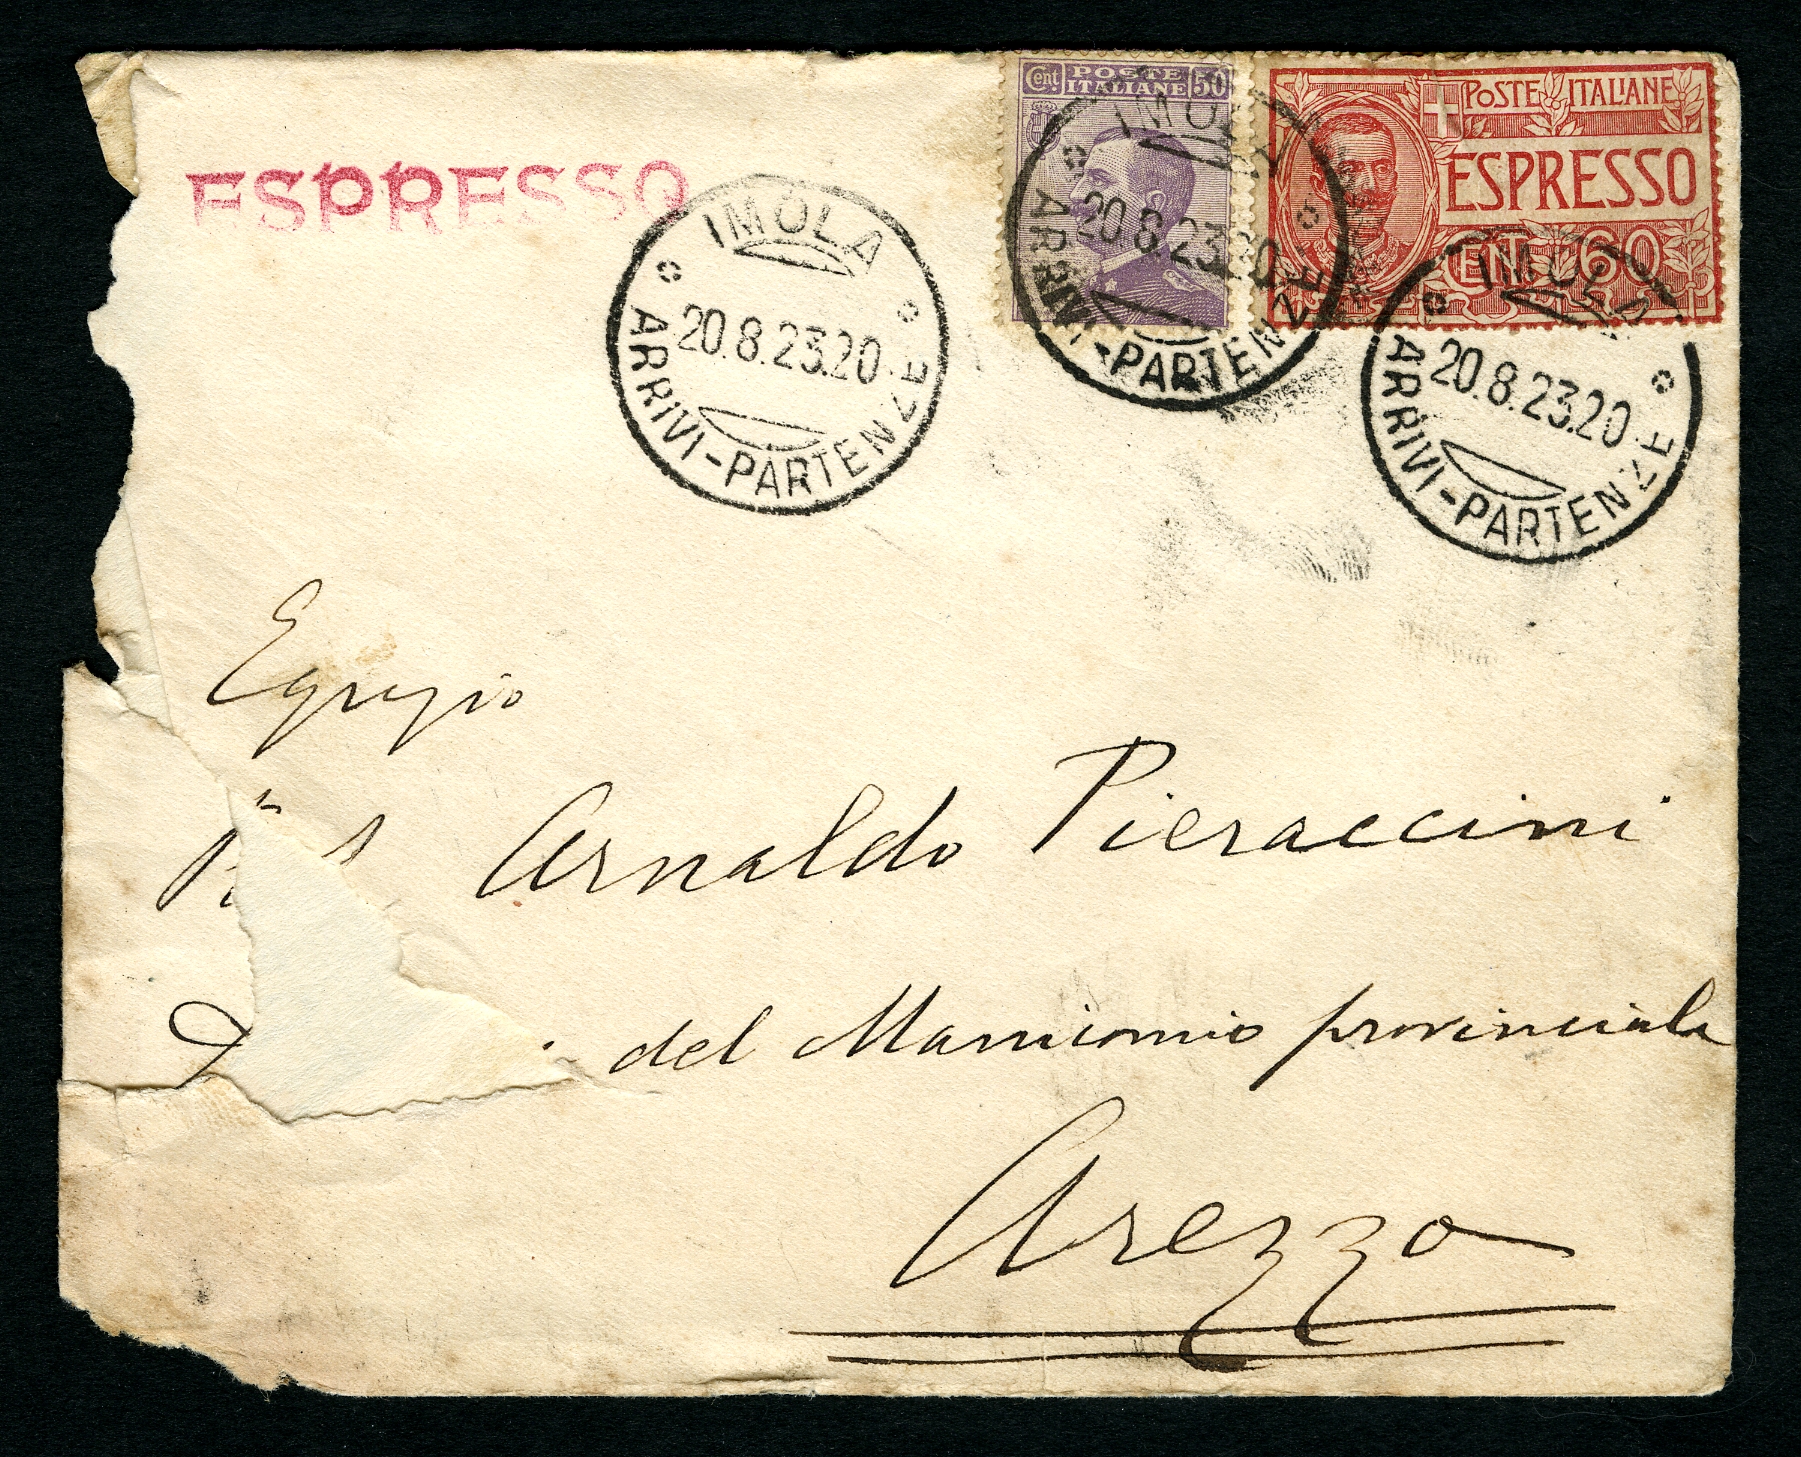 ESPRESSO
Cent. POSTE ITALIANE 50
POSTE ITALIANE
ESPRESSO
CENT. 60
IMOLA
20.8.23.20
ARRIVI-PARTENZE
IMOLA
20.8.23.20
ARRIVI-PARTENZE
IMOLA
20.8.23.20
ARRIVI-PARTENZE
Egregio
Arnaldo Pieraccini
del Manicomio provinciale
Arezzo